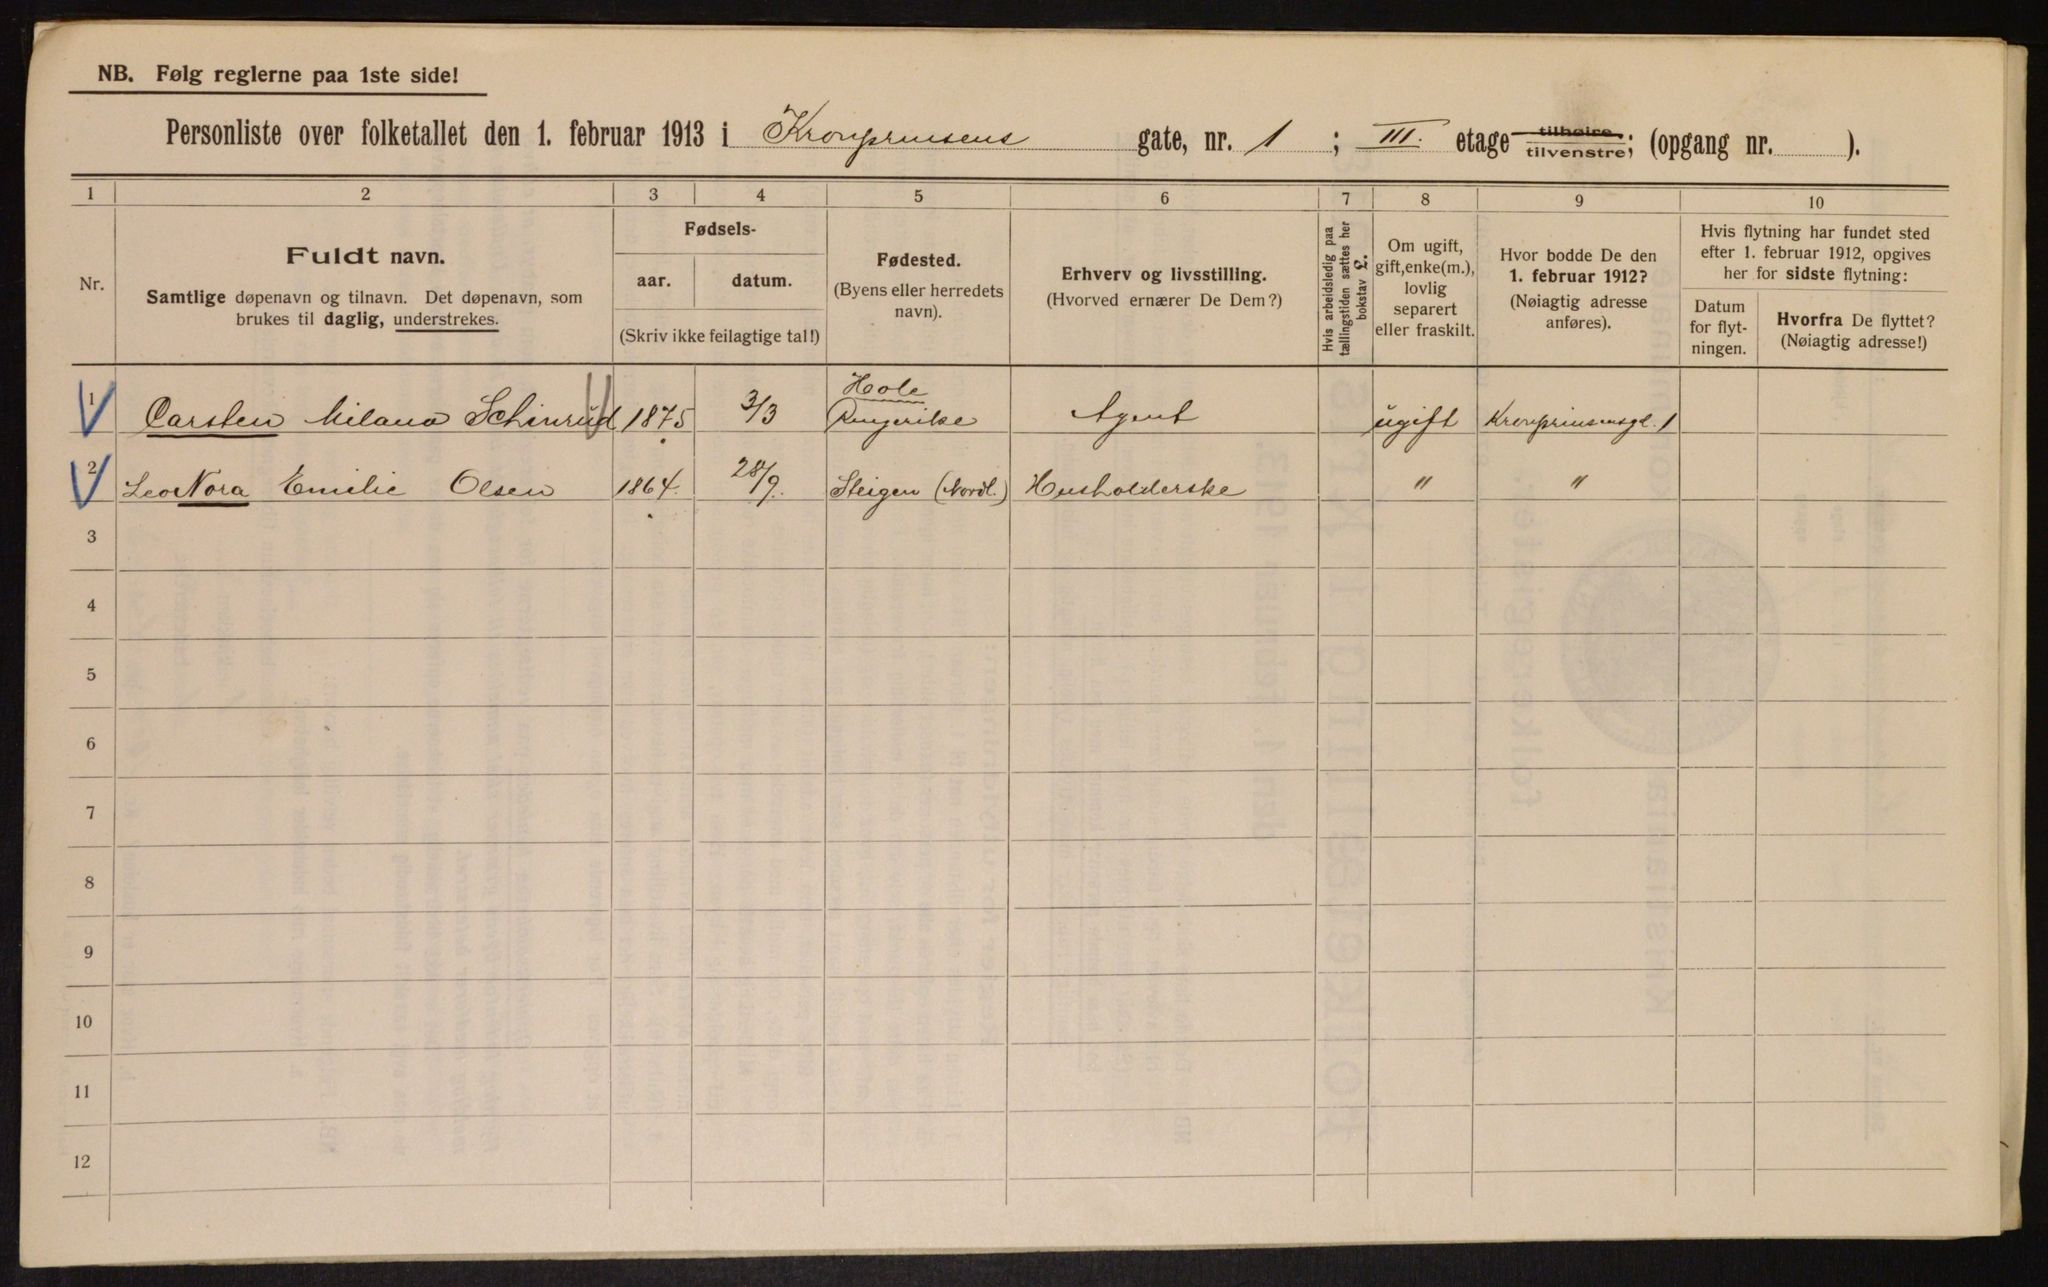 NB. Følg reglerne paa 1ste side!
Personliste over folketallet den 1. februar 1913 i Kronprinsens gate, nr. 1 ; III. etage tilhøire tilvenstre; (opgang nr. ).
1 2 3 4 5 6 7 8 9 10
Nr.
Fuldt navn.
Samtlige døpenavn og tilnavn. Det døpenavn, som
brukes til daglig, understrekes.
Fødsels-
aar.
datum.
(Skriv ikke feilagtige tal!)
Fødested.
(Byens eller herredets
navn).
Erhverv og livsstilling.
(Hvorved ernærer De Dem?)
Hvis arbeidsledig paa
tællingstiden sættes her
bokstav L.
Om ugift,
gift, enke(m.),
lovlig
separert
eller fraskilt.
Hvor bodde De den
1. februar 1912?
(Nøiagtig adresse
anføres).
Hvis flytning har fundet sted
efter 1. februar 1912, opgives
her for sidste flytning:
Datum
for flyt-
ningen.
Hvorfra De flyttet?
(Nøiagtig adresse!)
Hole
1 Carsten Milano Schinrud 1875 3/3 Ringerike Agent ugift Kronprinsensgt. 1
2 LeoNora Emilie Olsen 1864. 28/9. Steigen (Nordl.) Husholderske " "
3
4
5
6
7
8
9
10
11
12